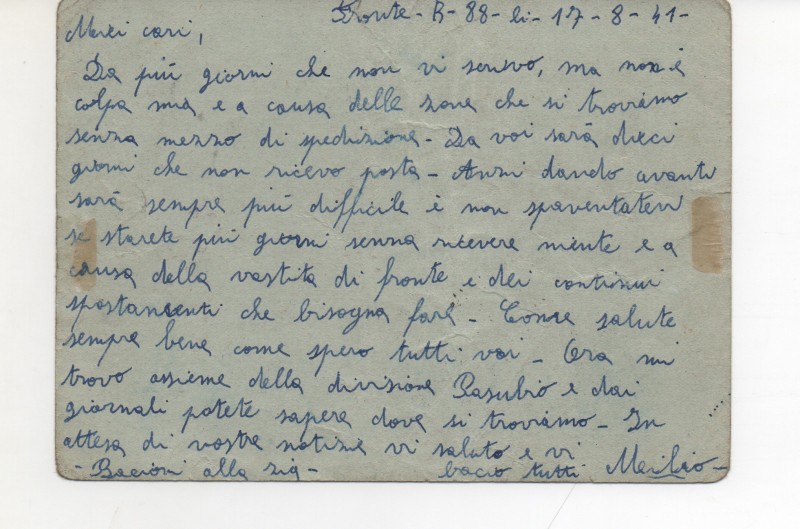 Fronte - R - 88 - li - 17 - 8 - 41 -
Miei cari,
Da più giorni che non vi scrivo, ma non è
colpa mia e a causa delle zone che si troviamo
senza mezzo di spedizione - Da voi sarà dieci
giorni che non ricevo posta - Anzi dando avanti
sarà sempre più difficile è non spaventatevi
se starete più giorni senza ricevere niente e a
causa della vastita di fronte e dei continui
spostamenti che bisogna fare - Come salute
sempre bene come spero tutti voi - Ora mi
trovo assieme della divisione Pasubio e dai
giornali potete sapere dove si troviamo - In
attesa di vostre notizie vi saluto e vi
- Bacioni alla zia - bacio tutti